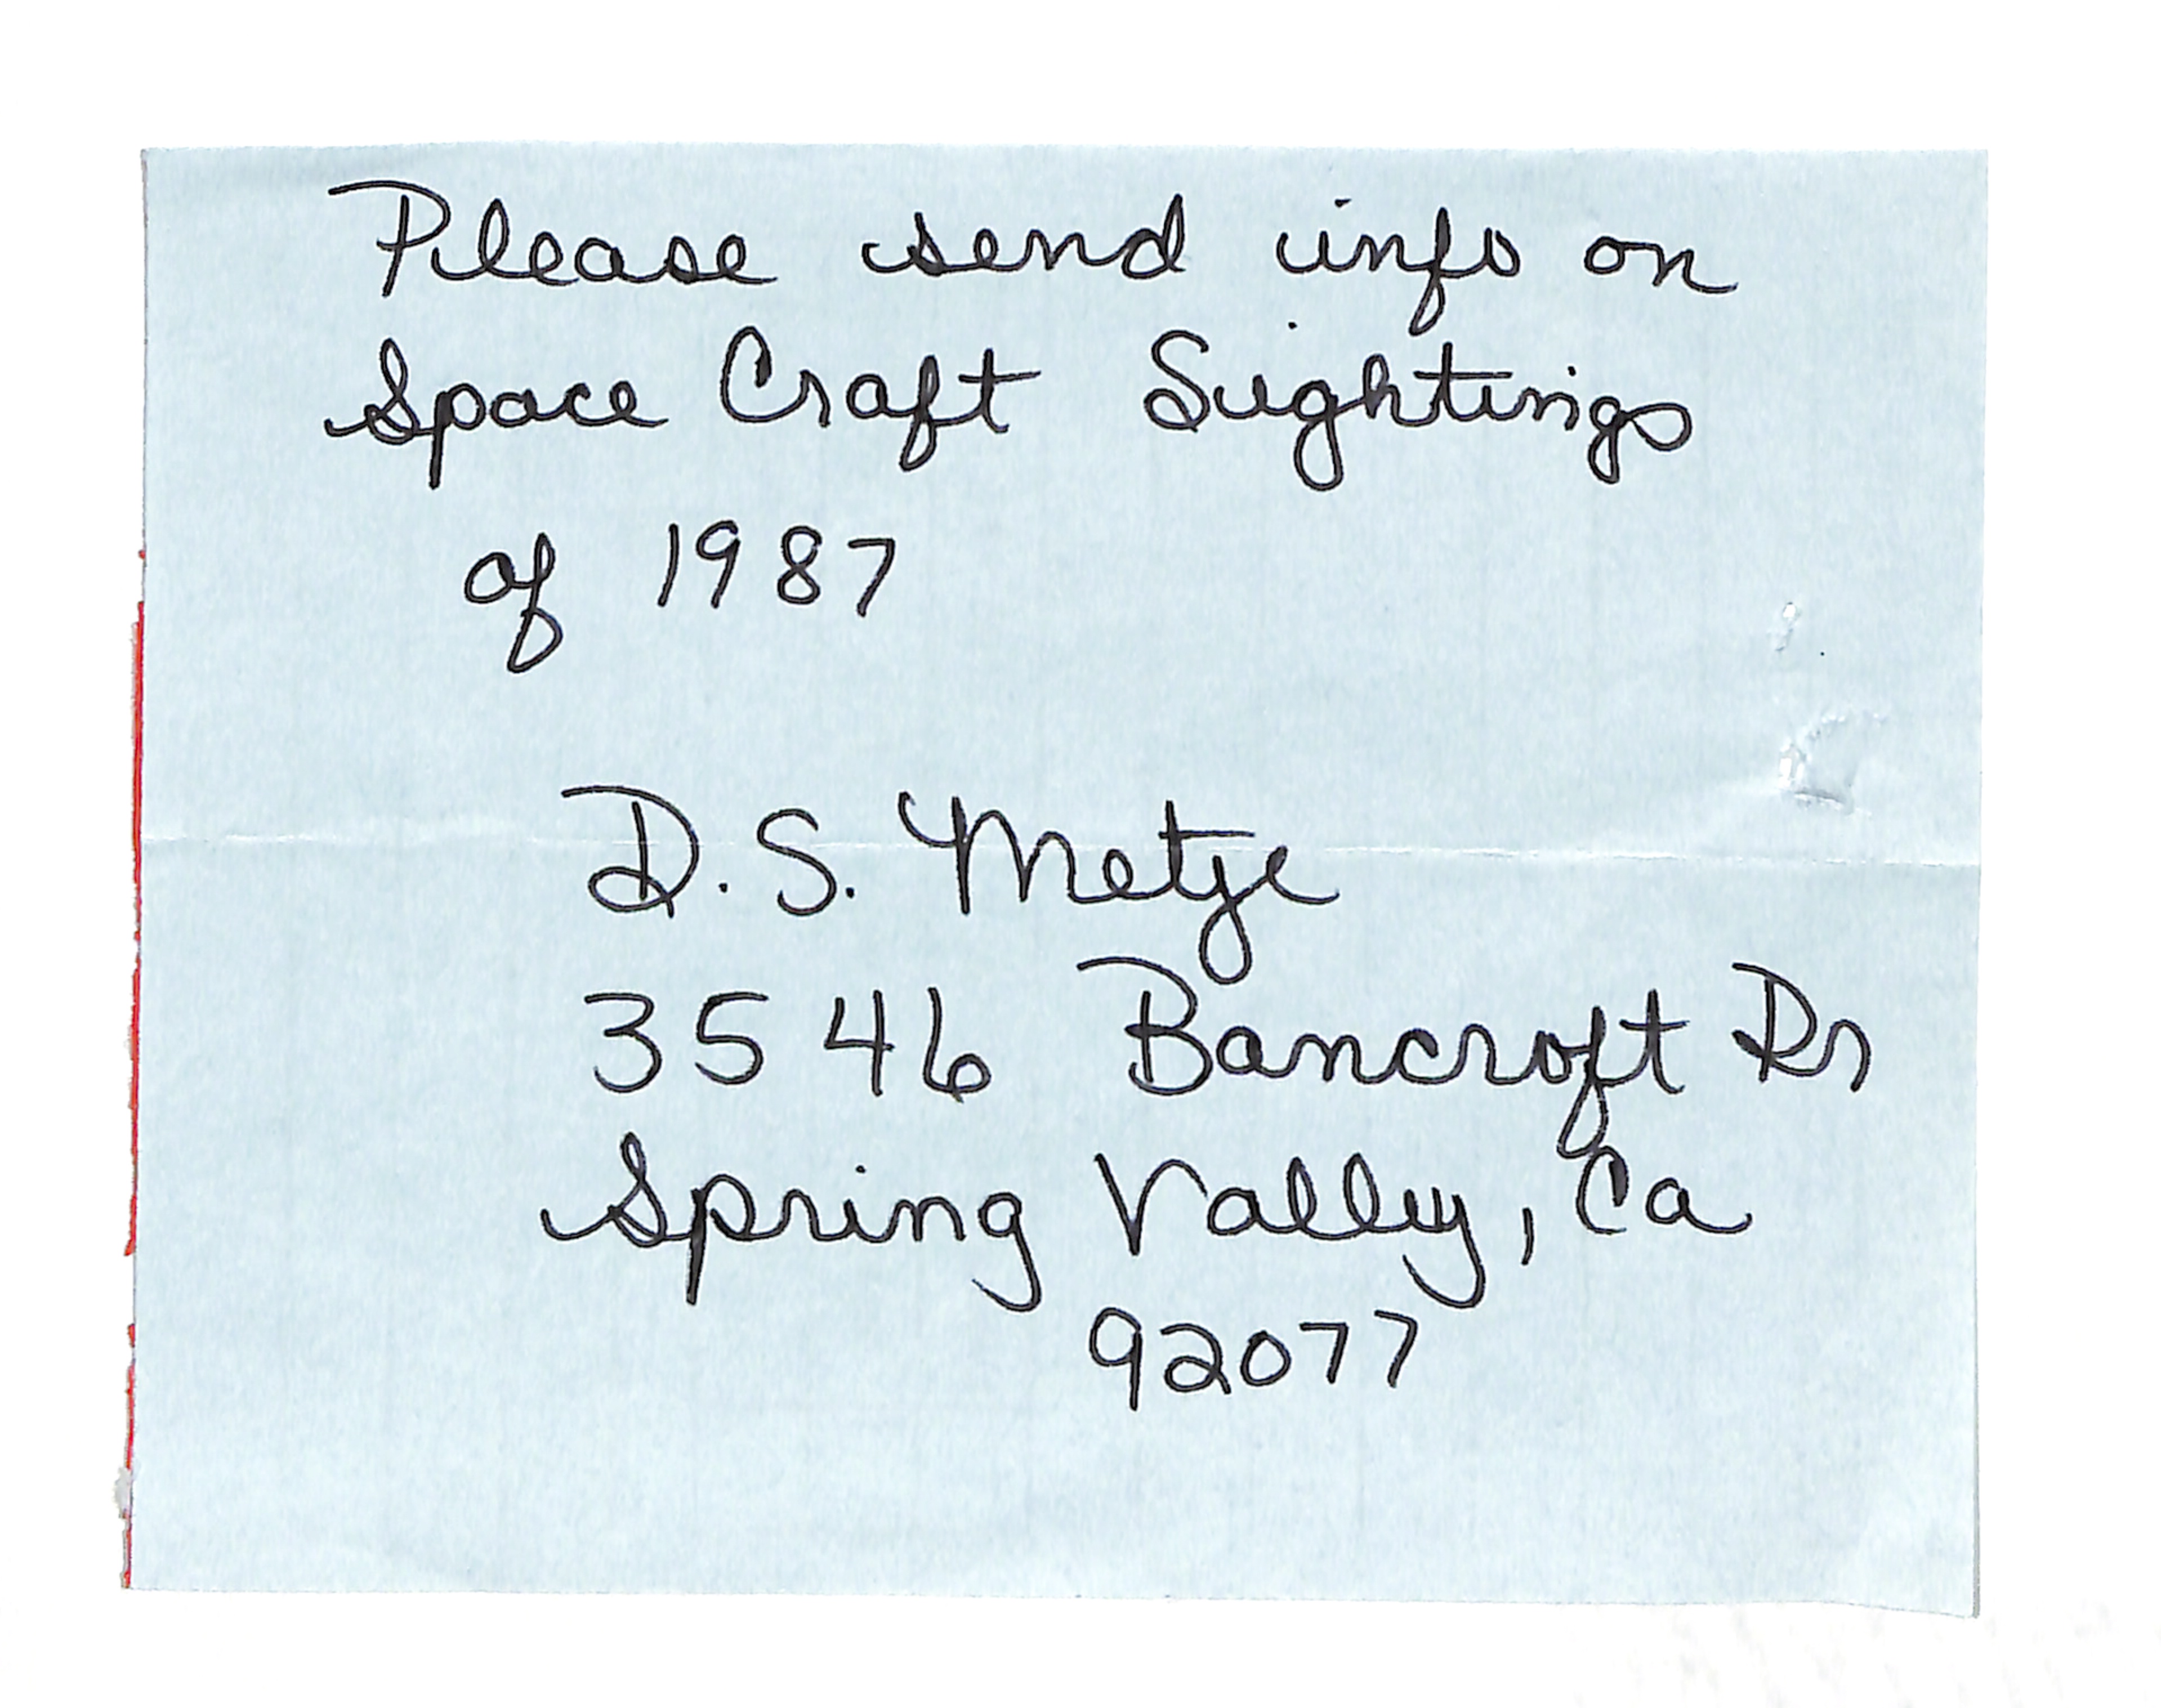 Please send info on
Space Craft Sightings
of 1987
D. S. Metze
3546 Bancroft Dr
Spring Vally, Ca
92077